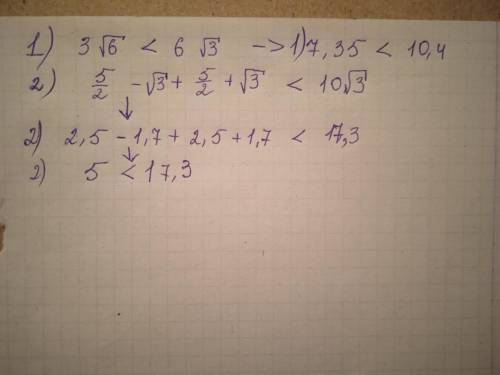 1) 3√6 < 6 √3 -> 1) 7,35 < 10,4
2) 5/2 - √3 + 5/2 + √3 < 10√3
↓
2) 2,5 - 1,7 + 2,5 + 1,7 < 17,3
↓
2) 5 < 17,3